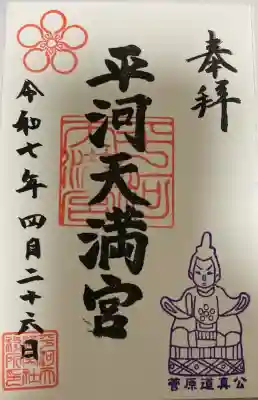 奉拝
平河天満宮
令和七年 四月二十六日
菅原道真公